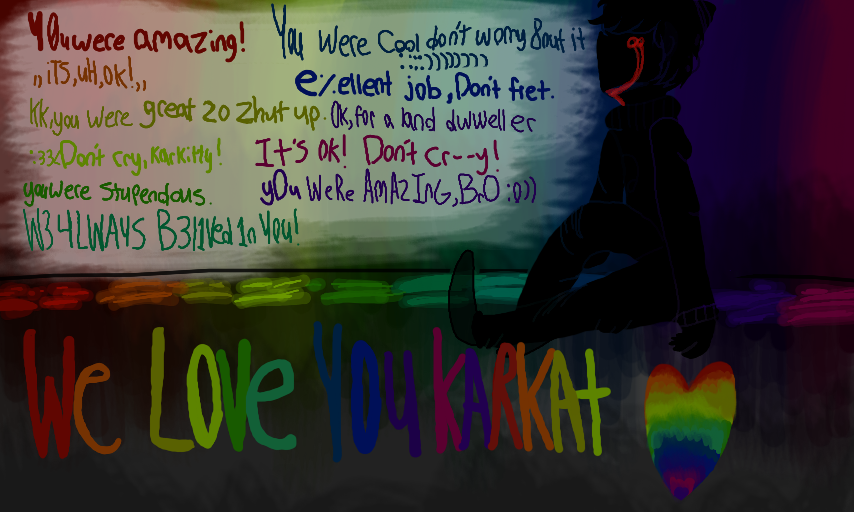 Y0u were amazing!
You Were Cool don't worry 8out it
::::))))))))
,, iTS, uH, ok!,,
e%ellent job, Don't fret.
KK, you Were great 2o Zhut up.
Ok, for a land dwweller
:33<Don't cry, Karkitty!
It's ok! Don't Cr--y!
youwere Stupendous.
yOu WeRe AmAzInG, BrO :o))
W3 4LWAYS B3l1Ved 1n You!
We LOVe YOU KARKAt